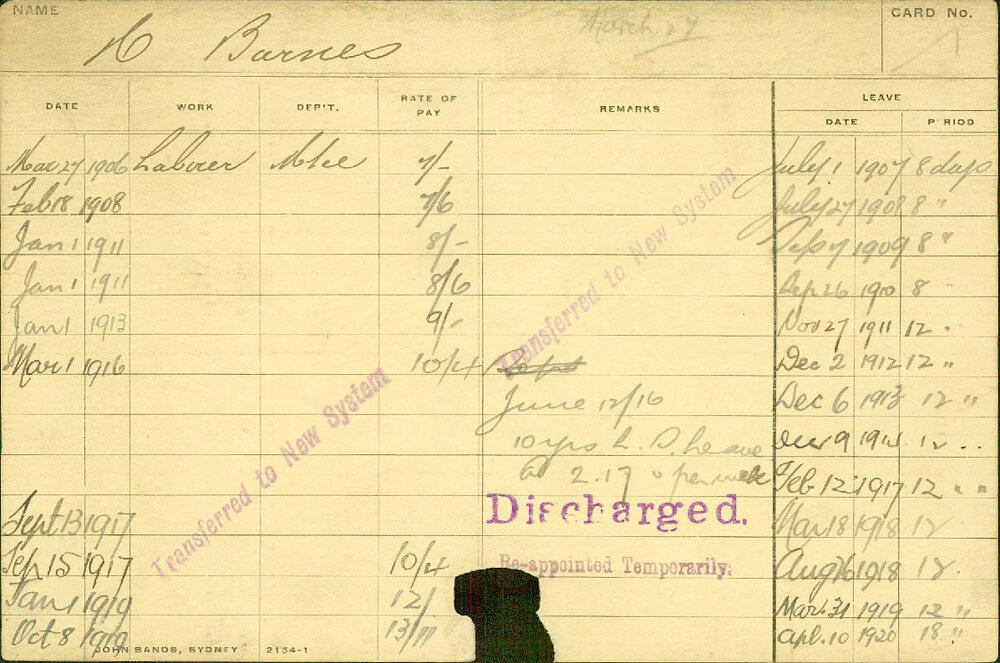 NAME
Barnes
March 27
CARD No.
DATE WORK DEP'T. RATE OF PAY REMARKS LEAVE
DATE PERIOD
Mar 27 1906 Labourer 7/- July 1 1907 8 days
Feb 18 1908 7/6 July 27 1908 8 "
Jan 1 1911 8/- Sep 7 1909 8 "
Jan 1 1911 8/6 Sep 26 1910 8 "
Jan 1 1913 9/- Nov 27 1911 12 "
Mar 1 1916 10/4 Dec 2 1912 12 "
June 12/16 Dec 6 1913 12 "
10 yrs L. S. Leave Dec 9 1914 12 "
@ 2.17.0 per week Feb 12 1917 12 " "
Transferred to New System
Transferred to New System
Sept 13 1917 Discharged. Mar 18 1918 12
Sep 15 1917 10/4 Re-appointed Temporarily. Aug 16 1918 12.
Jan 1 1919 12/ Mar 31 1919 12 "
Oct 8 1919 13/11 Apl. 10 1920 18 "
JOHN SANDS, SYDNEY 2154-1